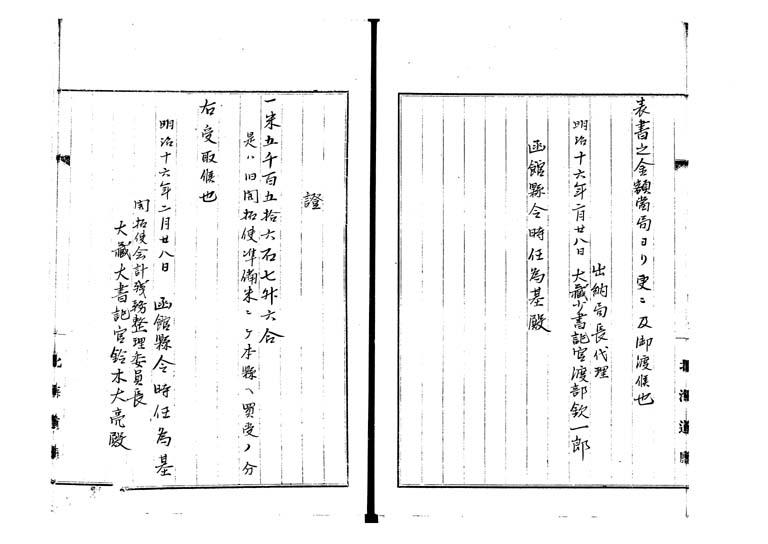 表書之金額当局ヨリ更ニ及御渡候也
出納局長代理
明治十六年二月廿八日 大蔵少書記官渡部欽一郎
函館縣令時任為基殿
證
一米五千百五拾六石七升六合
是ハ旧開拓使準備米ニシテ本縣ヘ買受ノ分
右受取候也
明治十六年二月廿八日 函館縣令時任為基
開拓使会計残務整理委員長
大蔵大書記官鈴木大亮殿
北海道